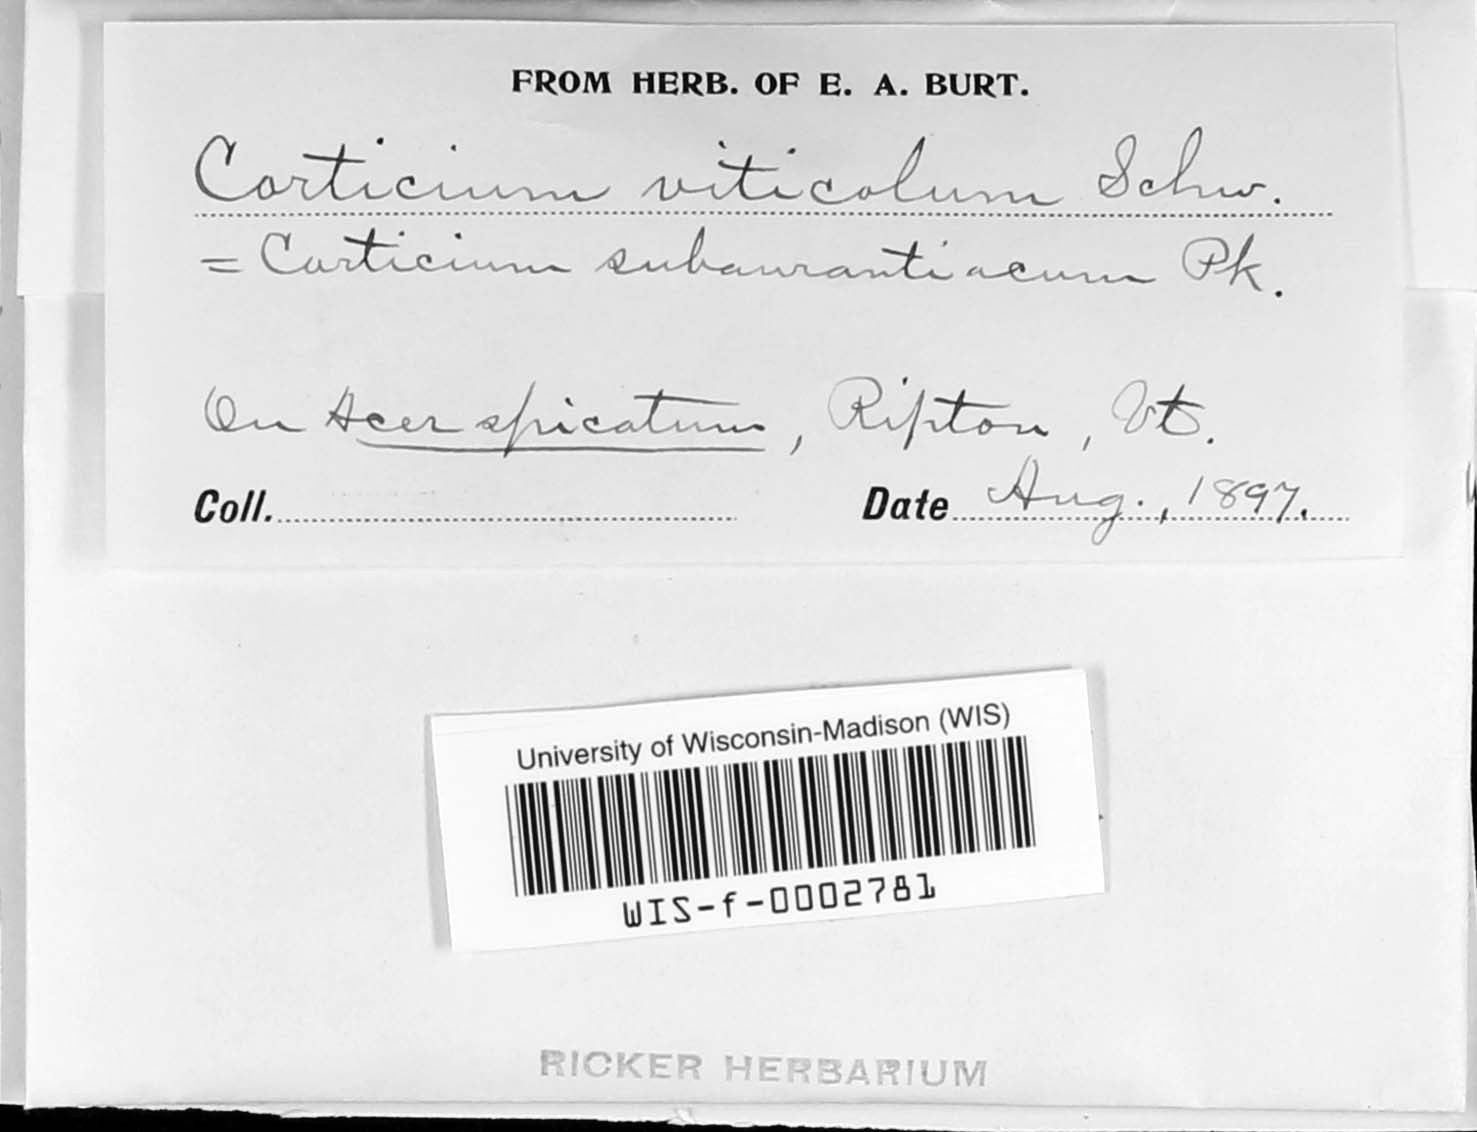 FROM HERB. OF E. A. BURT.
Corticium viticolum Schw.
= Corticium subaurantiacum Pk.
On Acer spicatum, Ripton, Vt.
Coll. Date Aug., 1897.
University of Wisconsin-Madison (WIS)
WIS-f-0002781
RICKER HERBARIUM